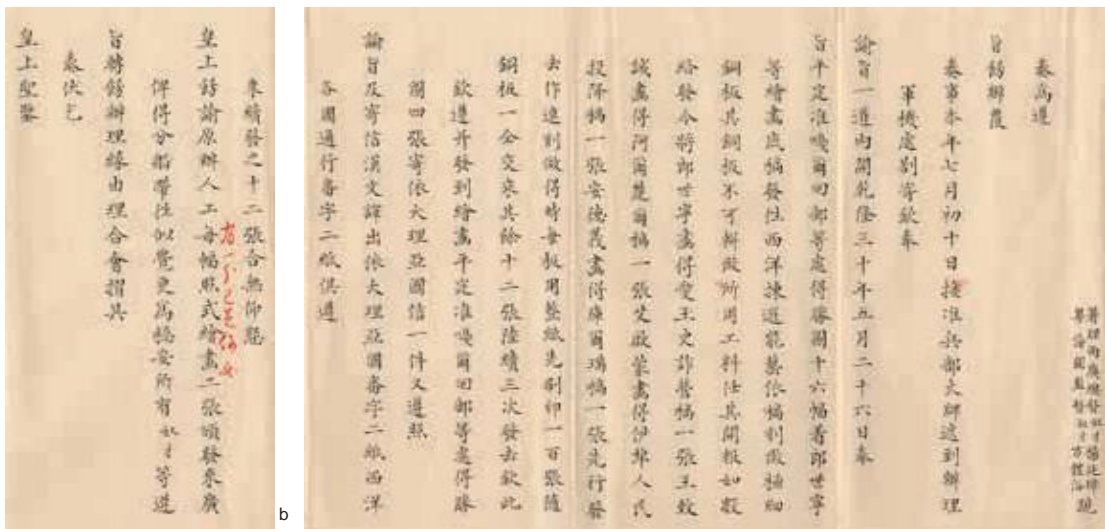 署理兩廣總督奴才楊廷璋跪
粵海關監督奴才方體浴
奏為遵
旨飭辦覆
奏事本年七月初十日接准兵部火牌遞到辦理
軍機處劄寄欽奉
諭旨一道內開乾隆三十年五月二十六日奉
旨平定准噶爾回部等處得勝圖十六幅著郎世寧
等繪畫底稿發往西洋揀選能藝依稿刻做極細
銅板其銅板不可粗做所用工料任其開報如數
給發今將郎世寧畫得愛玉史詐營稿一張王致
誠畫得阿爾楚爾稿一張艾啟蒙畫得伊犂人民
投降稿一張安德義畫得庫爾瑪稿一張先行發
去作速刻做得時每板用整紙先刷印一百張隨
銅板一仝交來其餘十二張陸續三次發去欽此
欽遵并發到繪畫平定准噶爾回部等處得勝
圖四張寄依大理亞國信一件又遵照
諭旨及寄信漢文譯出依大理亞國番字二紙西洋
各國通行番字二紙俱遵
來續發之十二張合無仰懇
皇上飭諭原辦人工每幅照式繪畫二張頒發來廣
俾得分船帶往似覺更為穩妥所有奴才等遵
旨轉飭辦理緣由理合會摺具
奏伏乞
皇上聖鑒
b